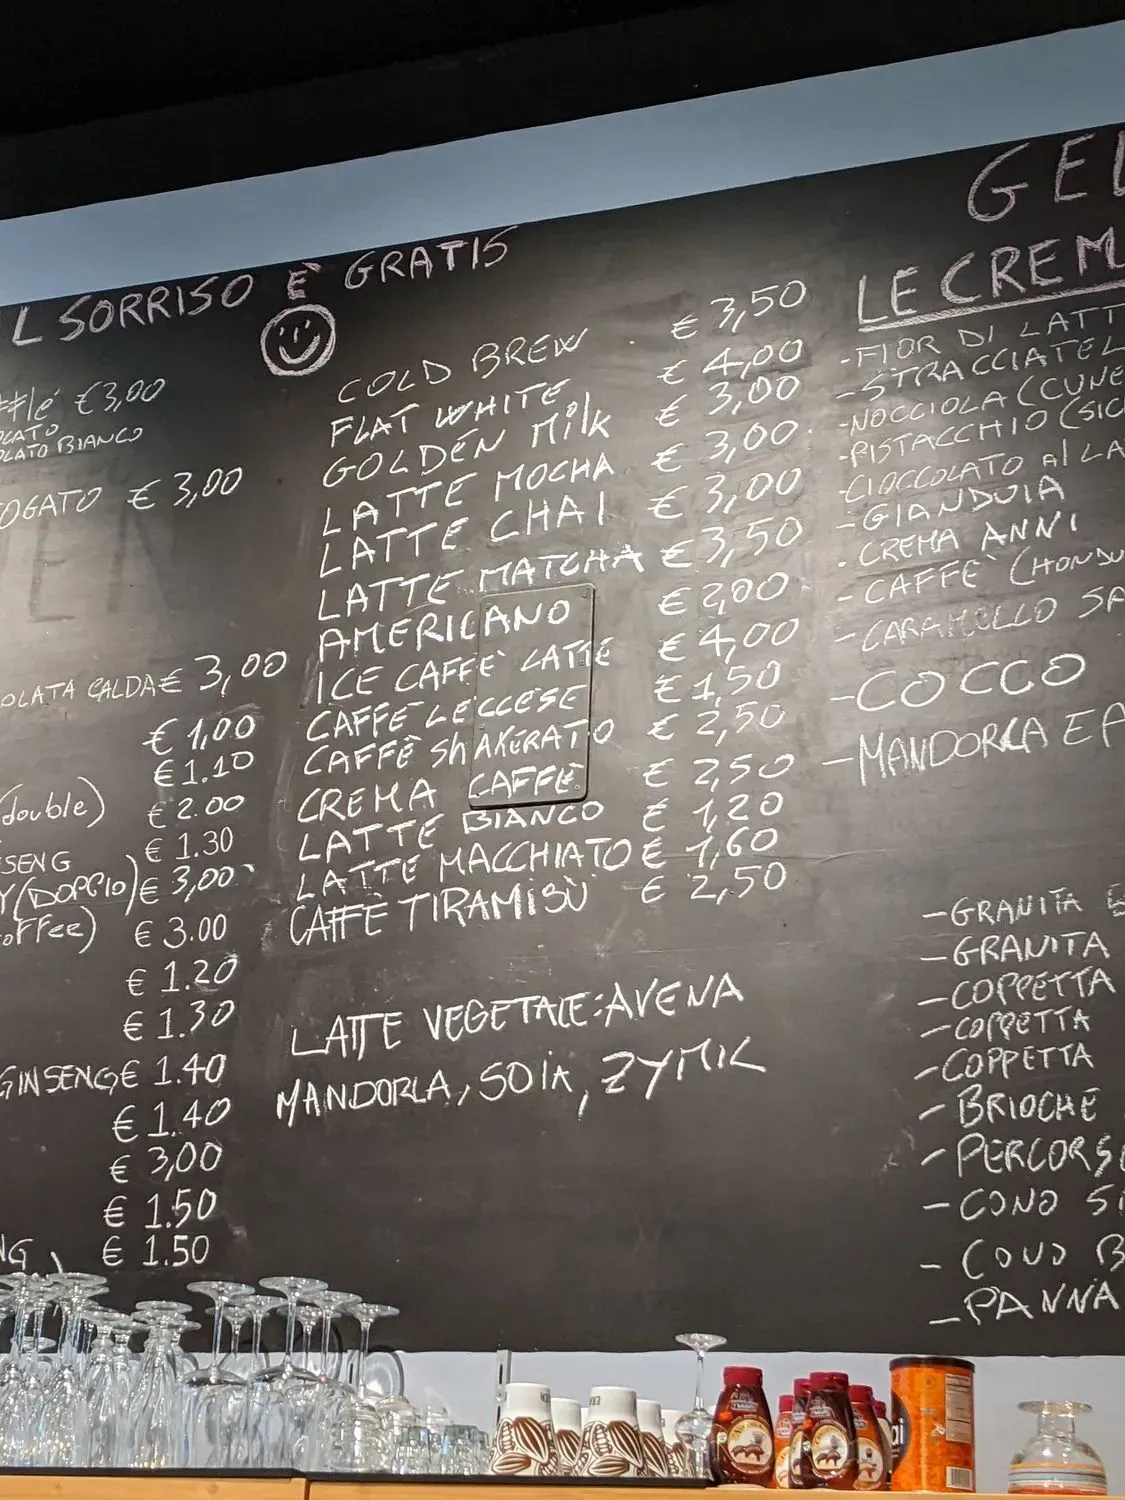 L SORRISO È GRATIS
€ 3,00
BIANCO
OGATO € 3,00
OLATA CALDA € 3,00
€ 1,00
€ 1.10
(double) € 2.00
SENG € 1.30
Y (DOPPIO) € 3,00
OFFee) € 3.00
€ 1.20
€ 1.30
GINSENG € 1.40
€ 1.40
€ 3,00
€ 1.50
NG € 1.50
COLD BREW € 3,50
FLAT WHITE € 4,00
GOLDEN Milk € 3,00
LATTE MOCHA € 3,00
LATTE CHAI € 3,00
LATTE MATCHA € 3,50
AMERICANO € 2,00
ICE CAFFÈ LATTE € 4,00
CAFFÈ LECCESE € 1,50
CAFFÈ ShAKERATO € 2,50
CREMA CAFFÈ € 2,50
LATTE BIANCO € 1,20
LATTE MACCHIATO € 1,60
CAFFÈ TIRAMISÙ € 2,50
LATTE VEGETALE: AVENA
MANDORLA, SOIA, ZYMIL
GEL
LE CREM
- FIOR DI LATT
- STRACCIATEL
- NOCCIOLA (CUNE
- PISTACCHIO (SIC
- CIOCCOLATO Al LA
- GIANDUIA
- CREMA ANNI
- CAFFÈ (HONDU
- CARAMELLO SA
- COCCO
- MANDORLA E
- GRANITA
- GRANITA
- COPPETTA
- COPPETTA
- COPPETTA
- BRIOCHE
- PERCORS
- CONO
- CONO
- PANNA